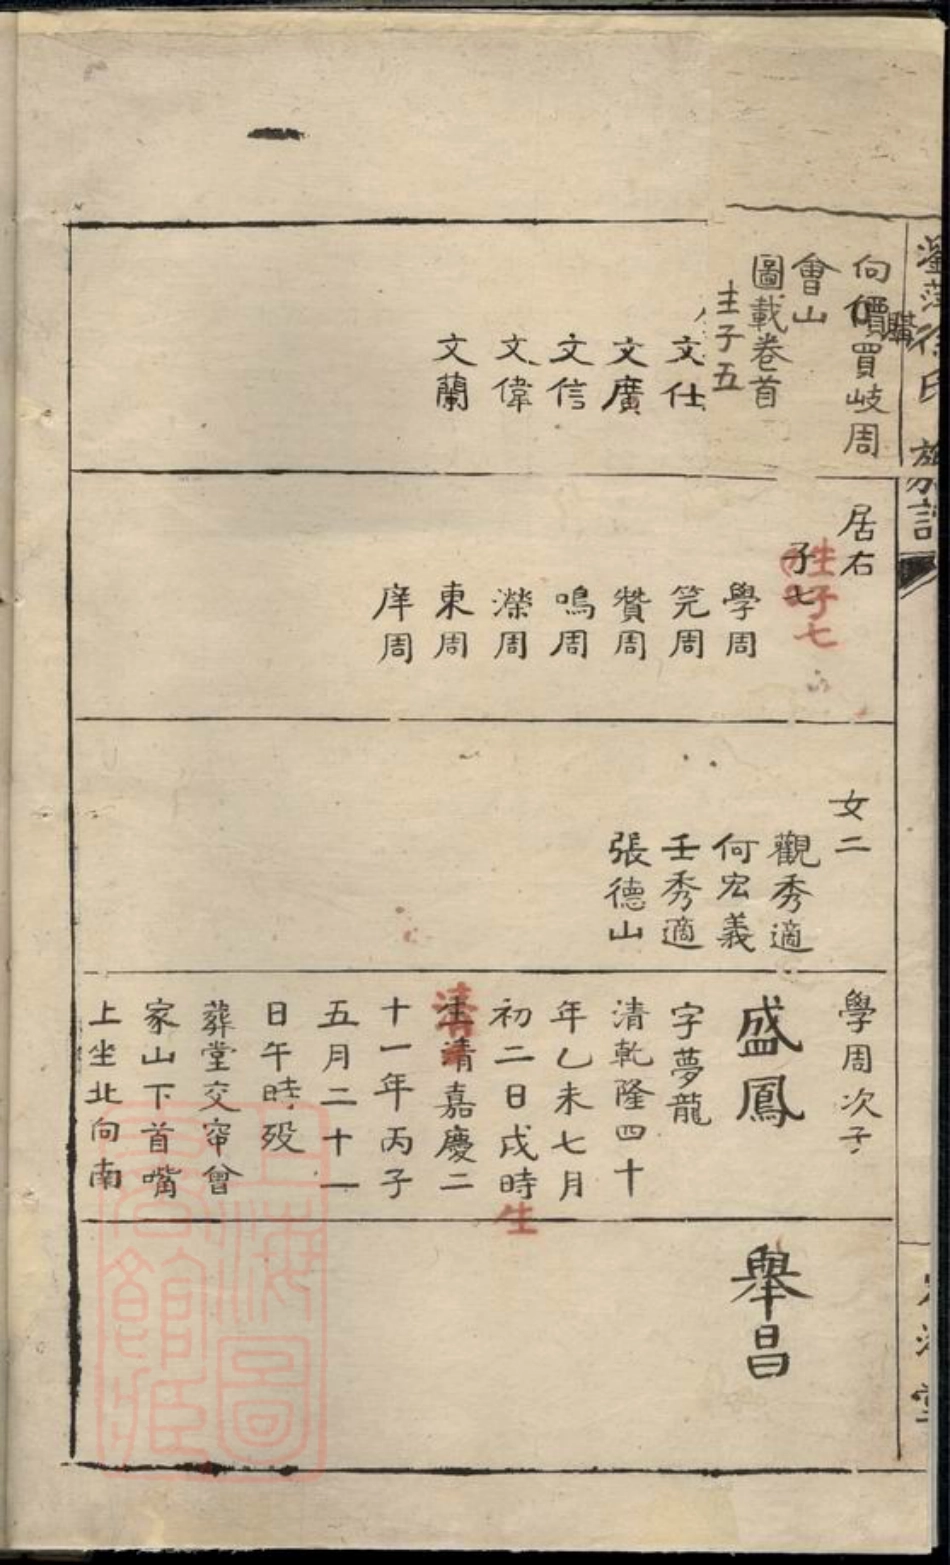 瀏萍徐氏族譜
向價買岐周
購
會山
圖載卷首
生子五
文仕
文廣
文信
文偉
文蘭
居右
子七
生子七
學周
筦周
贊周
鳴周
濼周
東周
庠周
女二
觀秀適
何宏義
壬秀適
張德山
學周次子
盛鳳
字夢龍
清乾隆四十
年乙未七月
初二日戌時
生
生清嘉慶二
清
十一年丙子
五月二十一
日午時歿
葬堂交窂曾
家山下首嘴
上坐北向南
舉昌
堂
上海圖
書館藏